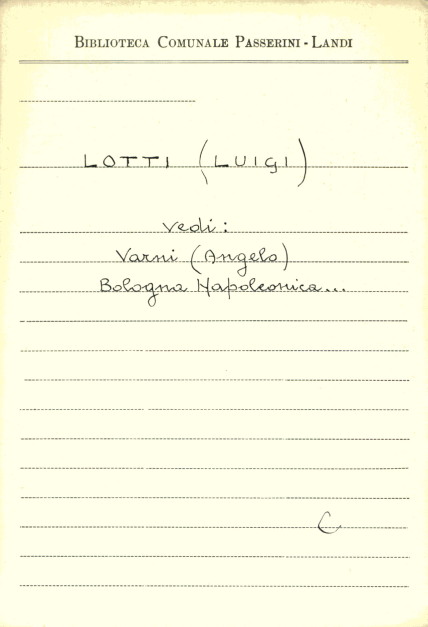 BIBLIOTECA COMUNALE PASSERINI - LANDI
LOTTI (LUIGI)
vedi:
Varni (Angelo)
Bologna Napoleonica...
C